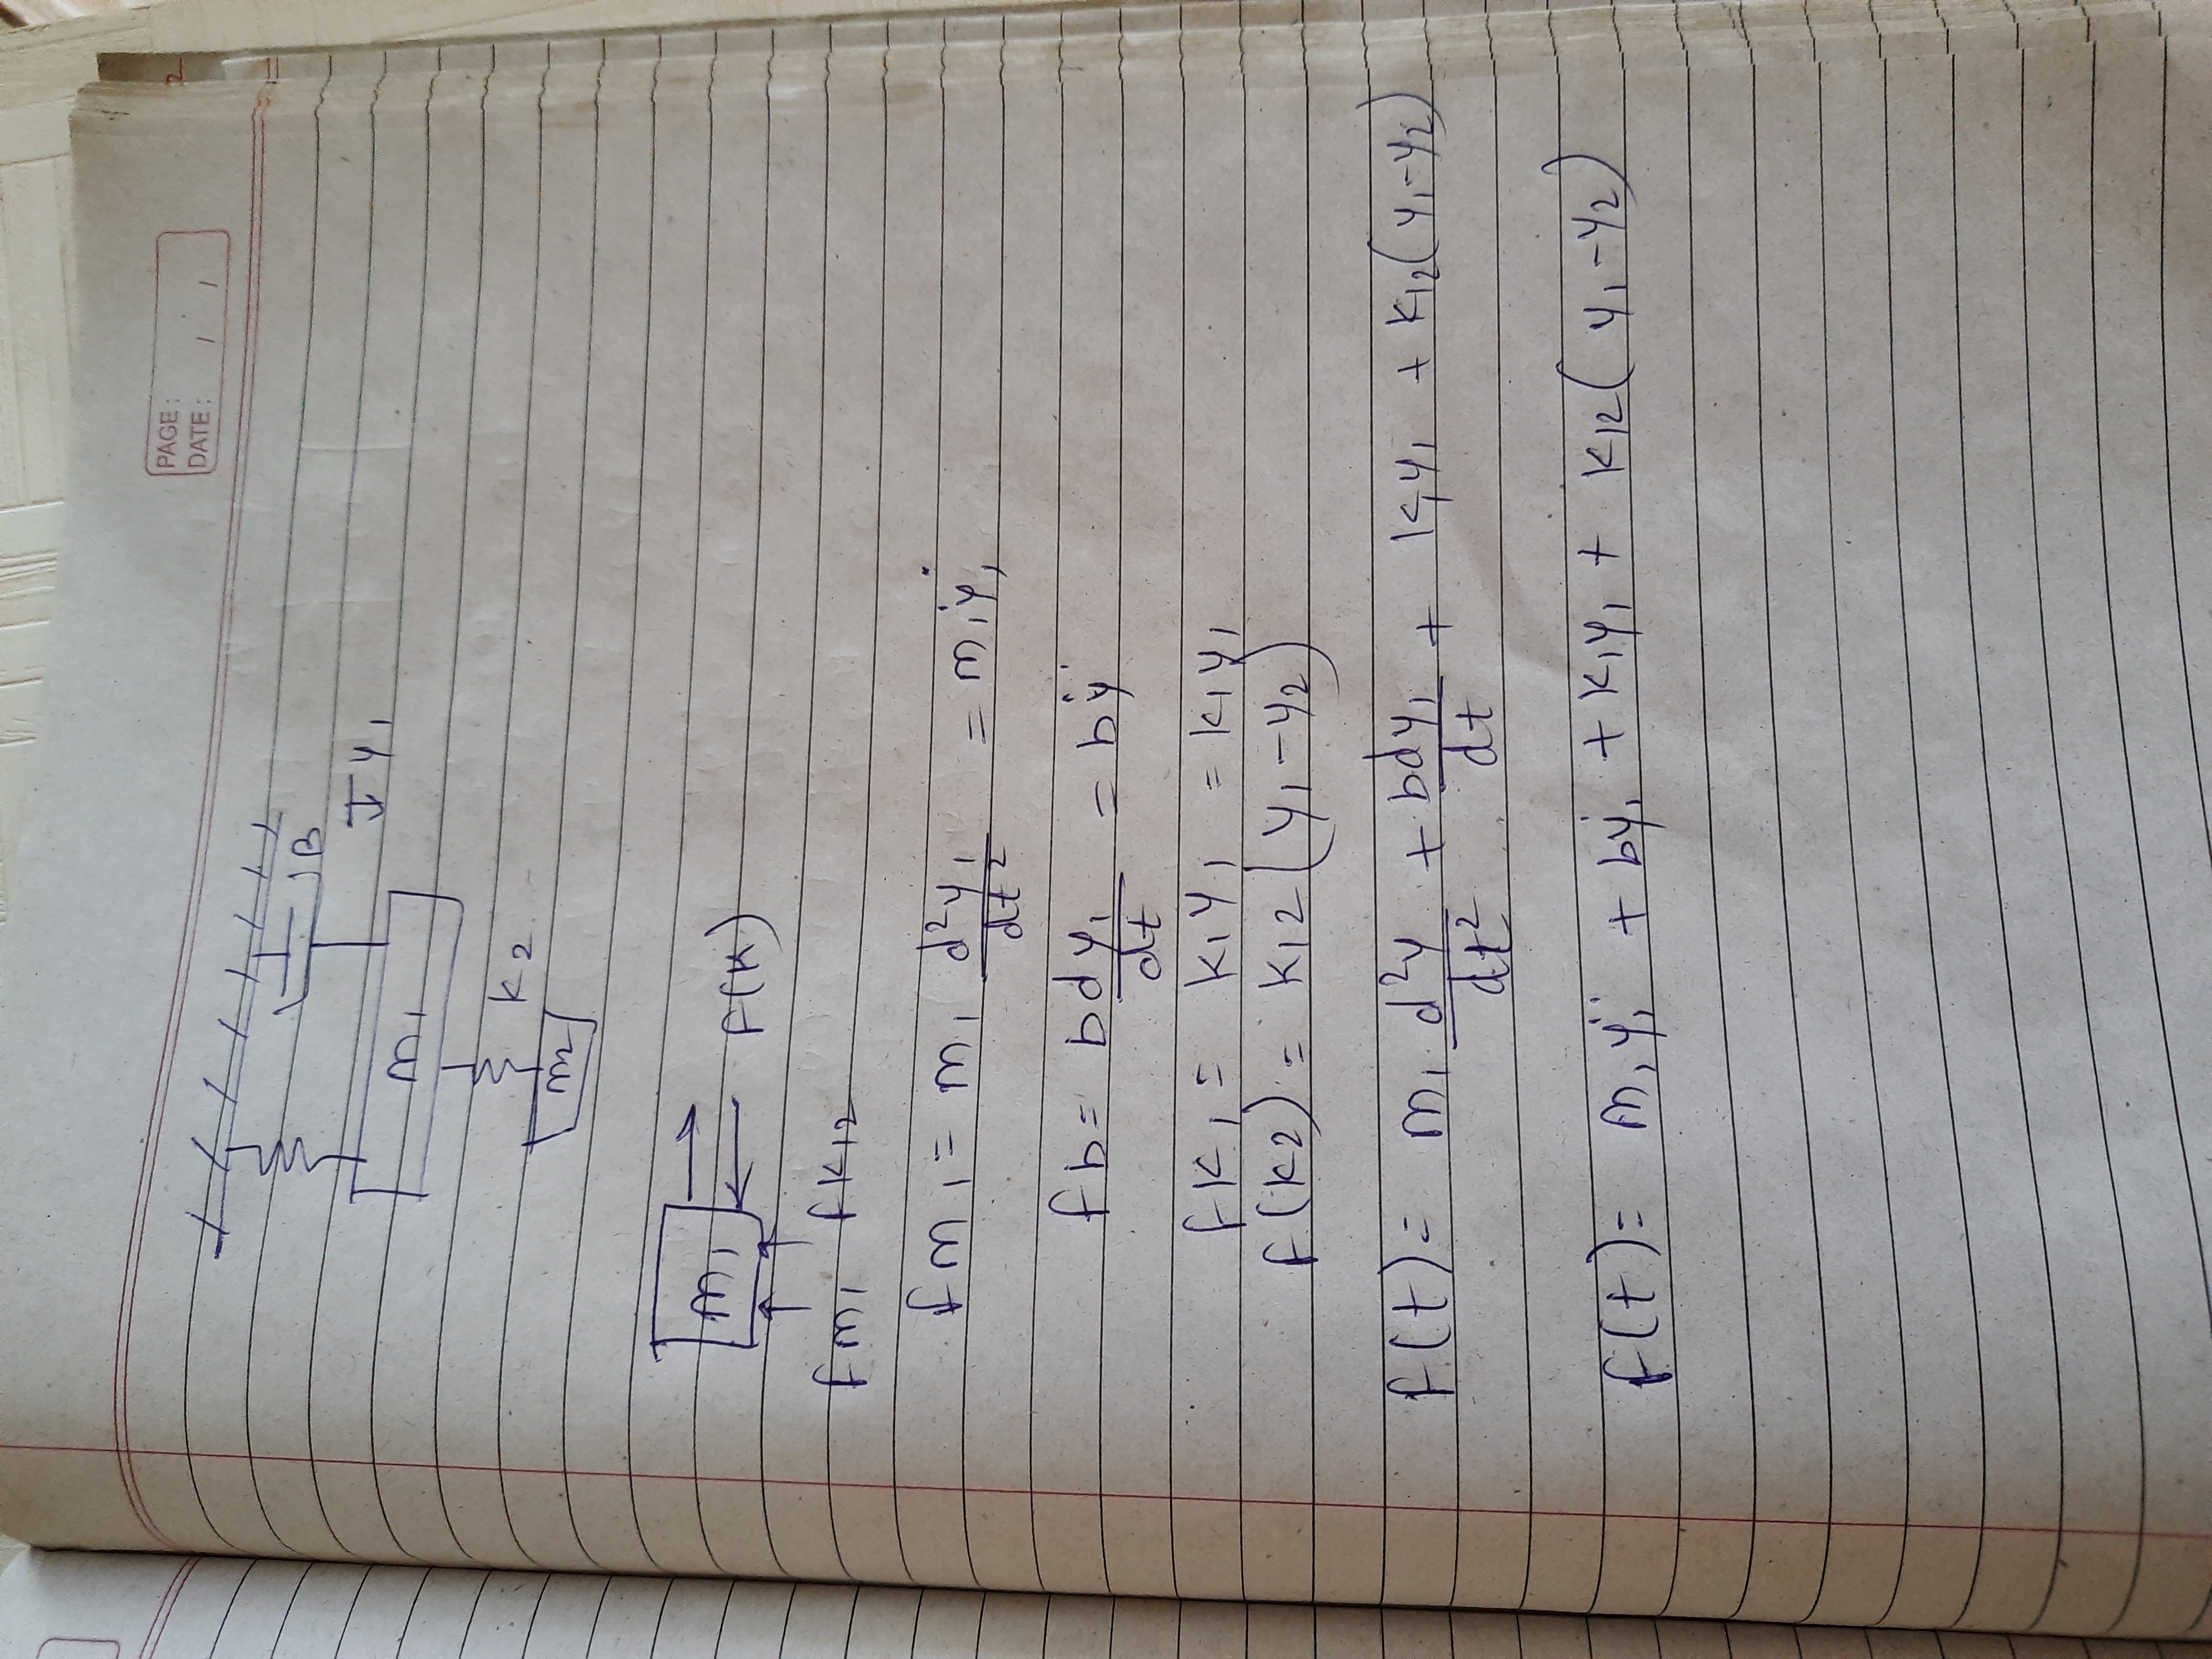 PAGE :
DATE : / /
2
B
y₁
m₁
k2
m2
m₁
f(k)
fm₁ fk12
fm₁ = m₁ d²y₁/dt² = m₁ÿ₁
fb = b dy₁/dt = bÿ
fk₁ = k₁y₁ = k₁y₁
f(k2) = k12(y₁-y2)
f(t) = m₁ d²y/dt² + b dy₁/dt + k₁y₁ + k12(y₁-y2)
f(t) = m₁ÿ₁ + bẏ₁ + k₁y₁ + k12(y₁-y2)